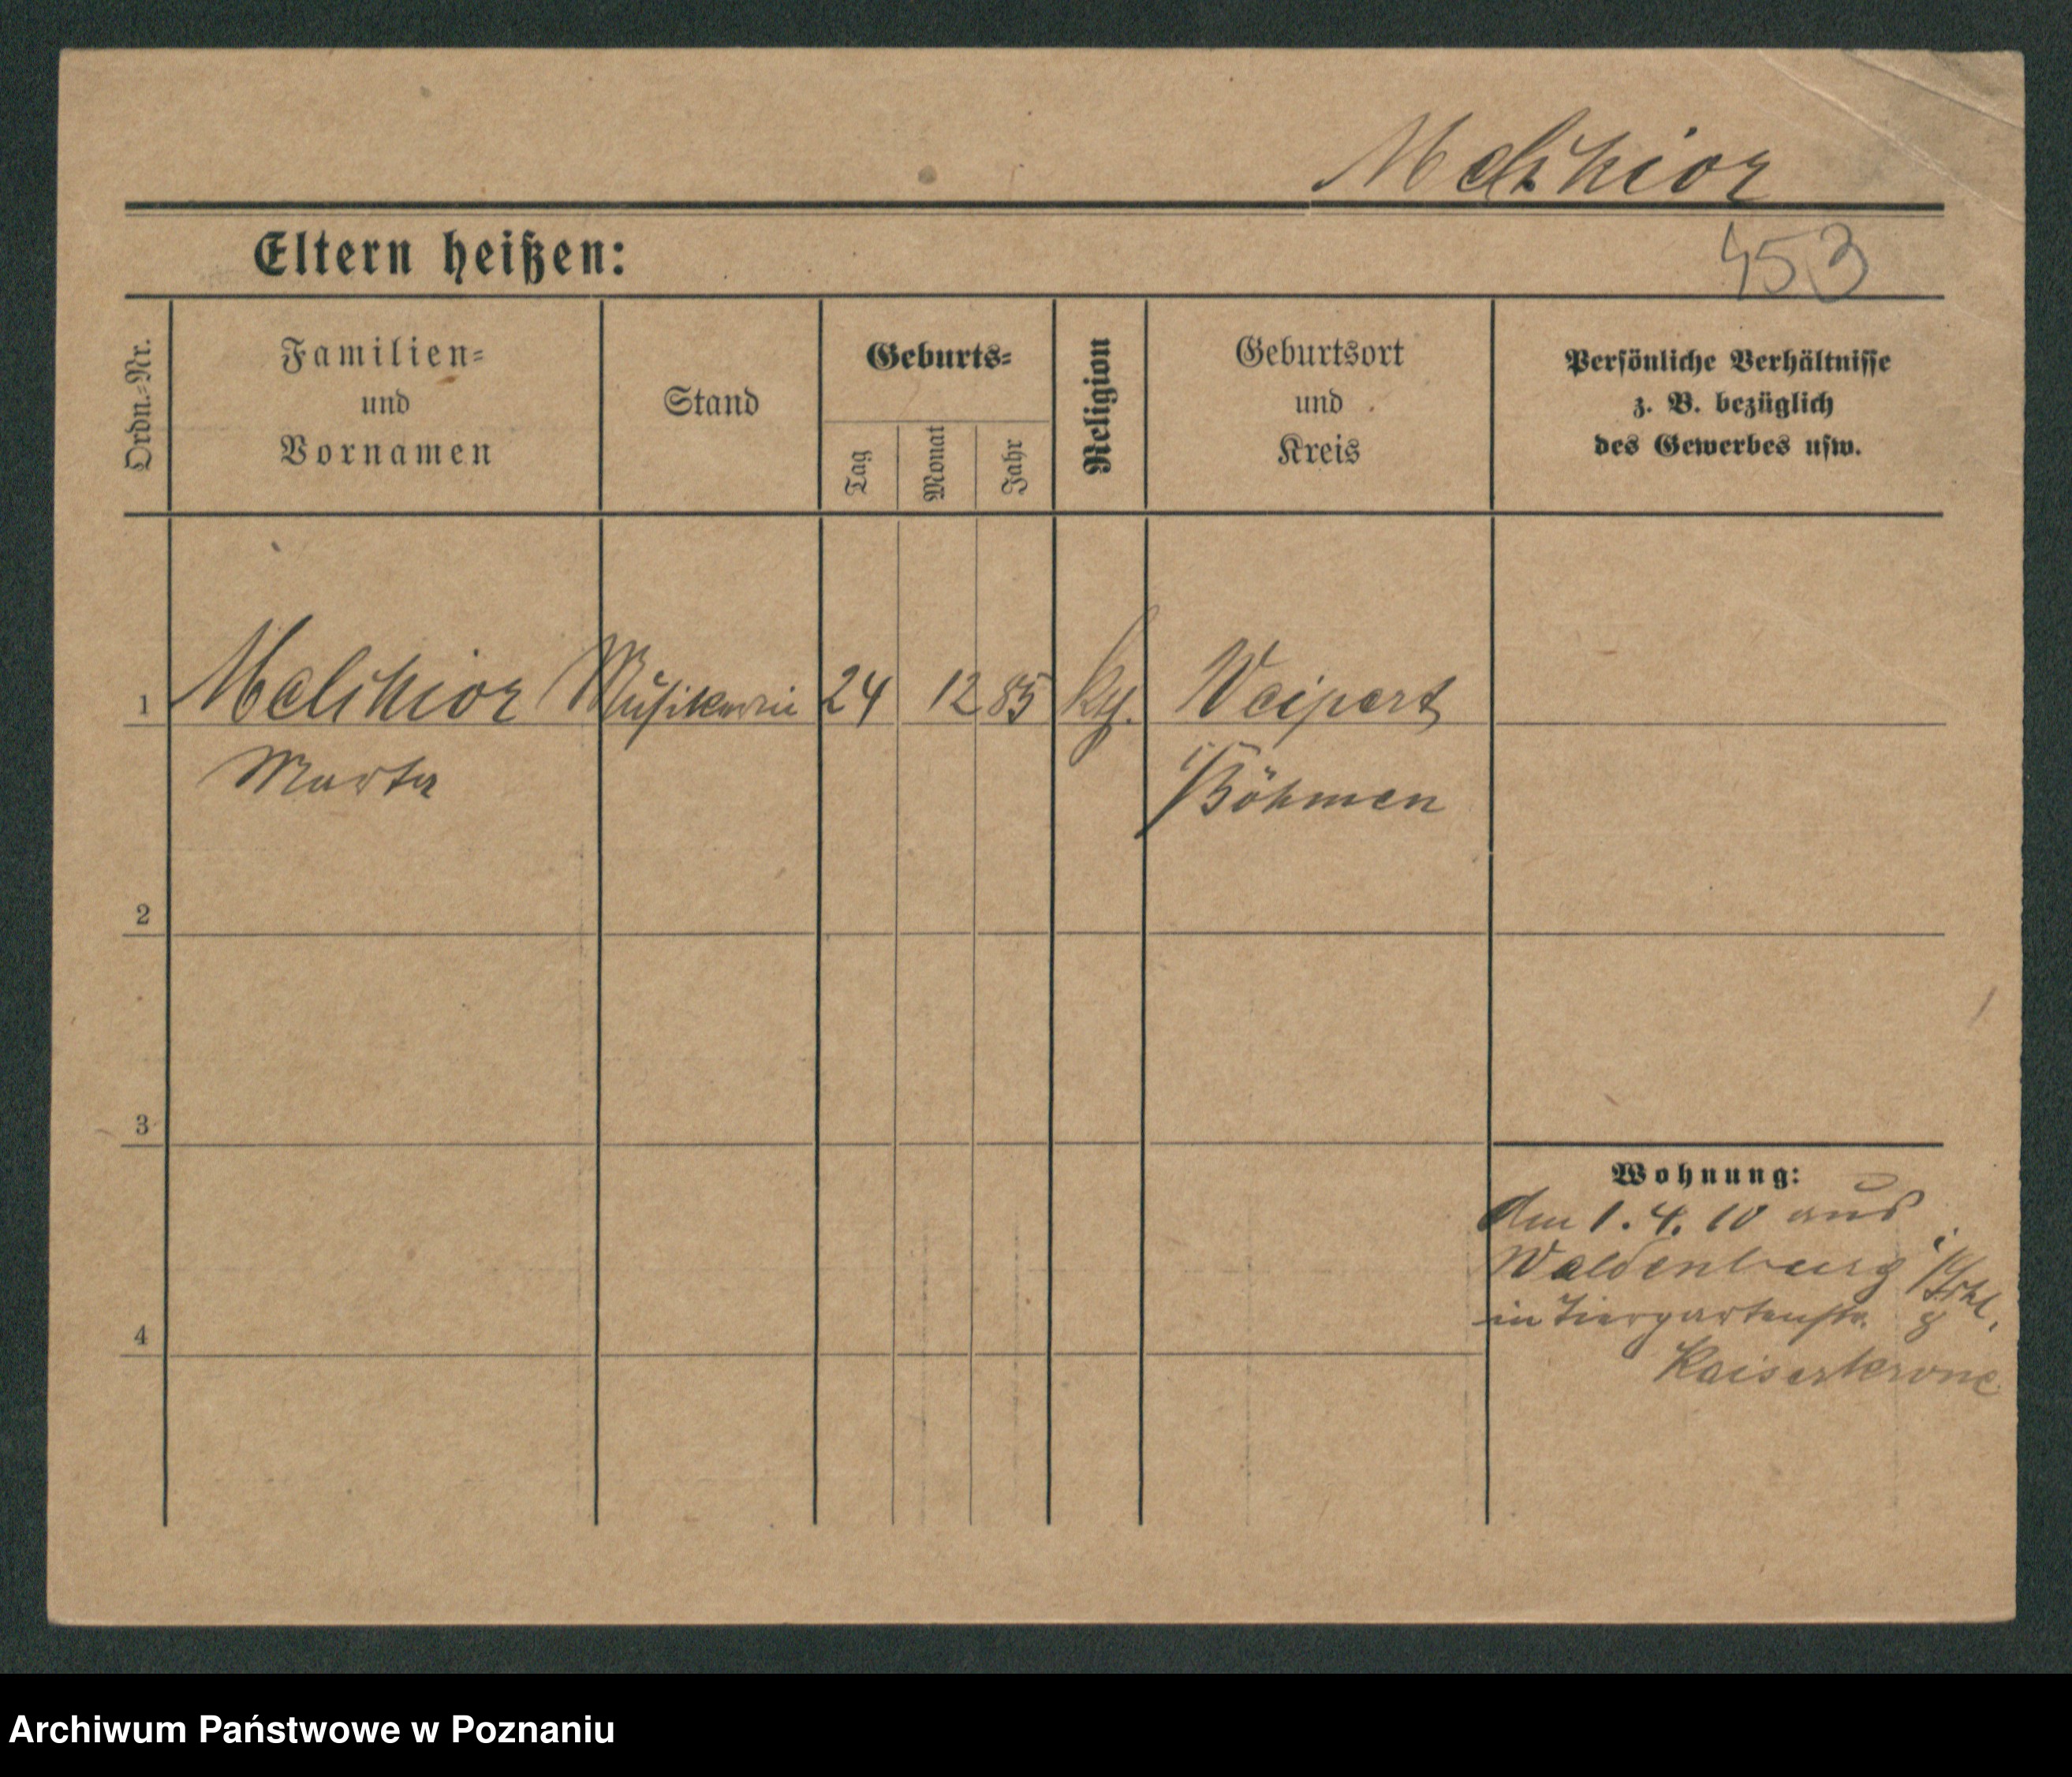 Melchior
Eltern heißen:
453
Ordn.-Nr.
Familien-
und
Vornamen
Stand
Geburts-
Tag
Monat
Jahr
Religion
Geburtsort
und
Kreis
Persönliche Verhältnisse
z. B. bezüglich
des Gewerbes usw.
1 Melchior Musikerin 24 12 85 Weipert
Marta i/Böhmen
2
3
4
Wohnung:
den 1. 4. 10 aus
Waldenburg i/Schl.
in Tiergartenstr. 8
Kaiserkrone
Archiwum Państwowe w Poznaniu